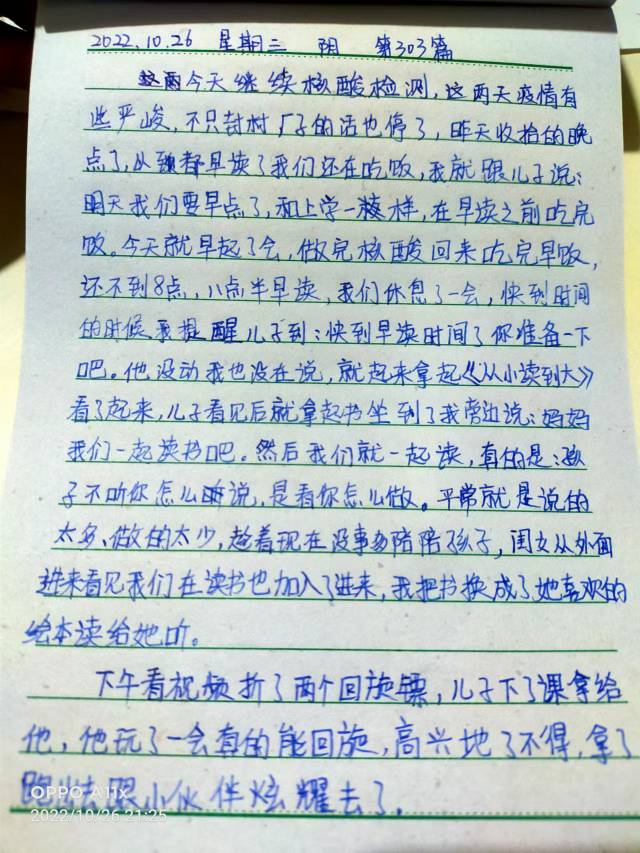 2022.10.26 星期三 阴 第303篇
今天继续核酸检测,这两天疫情有
些严峻,不只封村厂子的话也停了,昨天收拾的晚
点了,从颖都早读了我们还在吃饭,我就跟儿子说:
明天我们要早点了,和上学一样,在早读之前吃完
饭。今天就早起了会,做完核酸回来吃完早饭,
还不到8点,八点半早读,我们休息了一会,快到时间
的时候我提醒儿子到:快到早读时间了你准备一下
吧。他没动我也没在说,就起来拿起《从小读到大》
看了起来,儿子看见后就拿起书坐到了我旁边说:妈妈
我们一起读书吧。然后我们就一起读,真的是:孩
子不听你怎么说,是看你怎么做。平常就是说的
太多、做的太少,趁着现在没事多陪陪孩子,闺女从外面
进来看见我们在读书也加入了进来,我把书换成了她喜欢的
绘本读给她听。
下午看视频折了两个回旋镖,儿子下了课拿给
他,他玩了一会真的能回旋,高兴地了不得,拿了
跑出去跟小伙伴炫耀去了.
OPPO A11x
2022/10/26 21:25